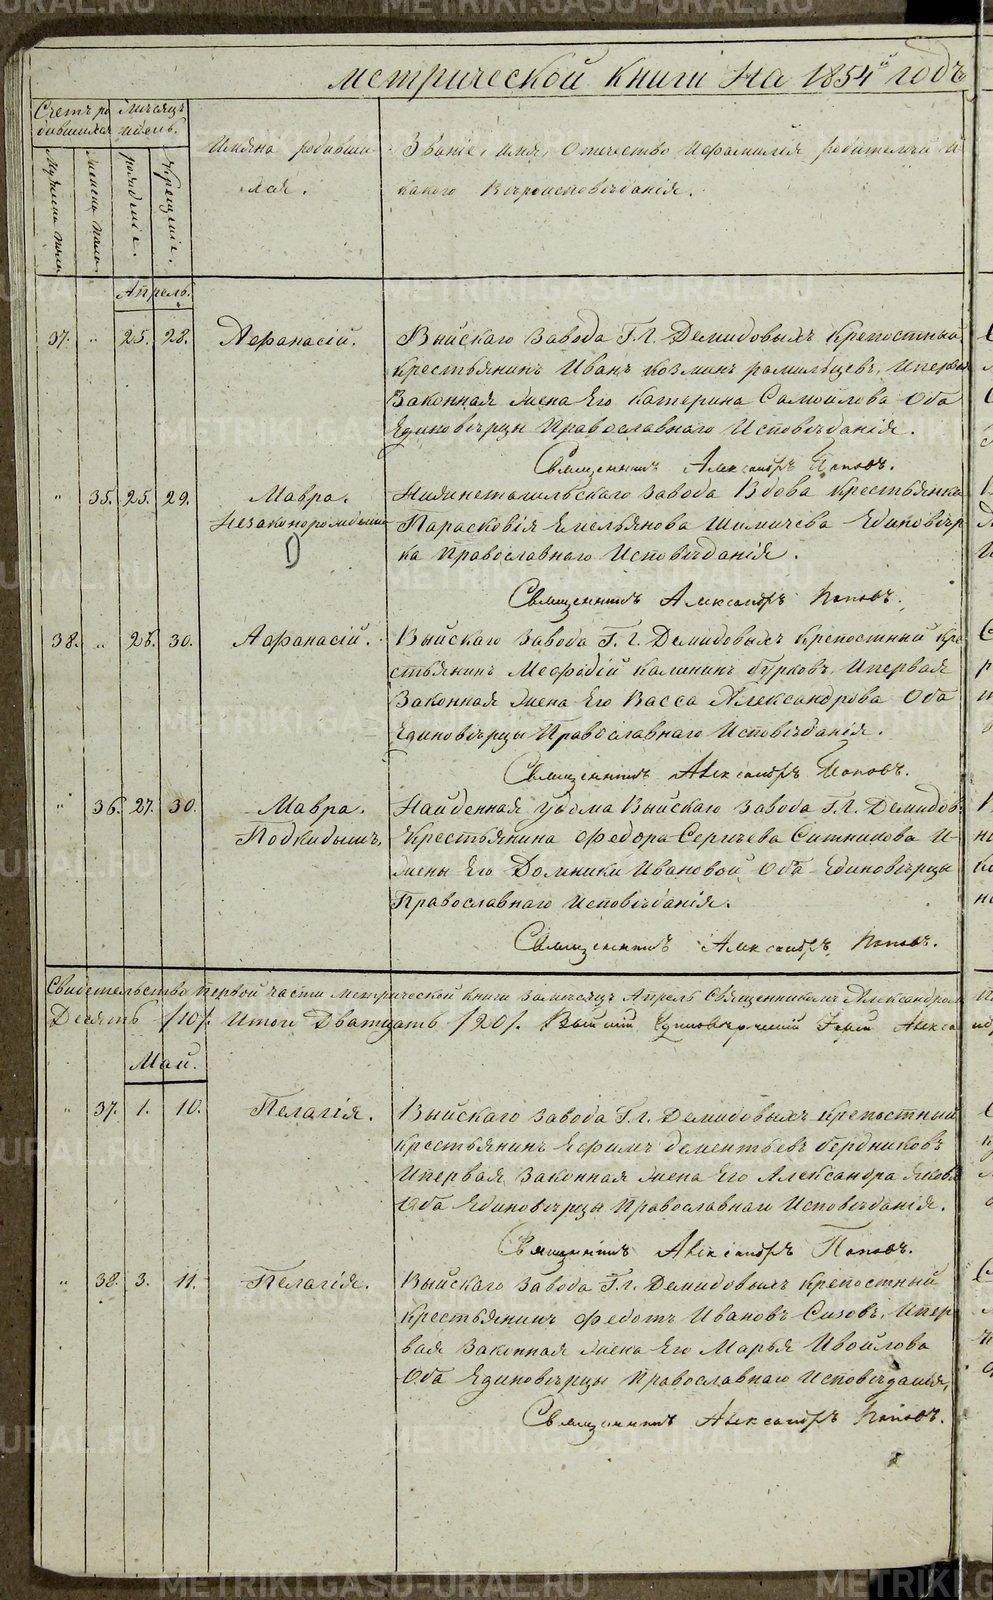 метрической книги на 1854й годъ
Счетъ ро
дившихся
Мѣсяцъ
и день.
Мужеска пола.
Женска пола.
рожденіе.
Крещеніе.
Имяна родивши-
хся.
Званіе, имя, отечество и фамилія родителей и
какого вѣроисповѣданія.
Апрель.
37. " 25. 28. Афанасій. Выйскаго завода Г.г. Демидовыхъ крепостный
крестьянинъ Иванъ Козминъ и первая
законная жена его Катерина Самойлова оба
единовѣрцы Православнаго Исповѣданія.
Священникъ Александръ Поповъ.
" 35. 25. 29. Мавра. Нижнетагильскаго завода вдова крестьянка
Незаконорожденная Парасковія Емельянова единовѣр
ка Православнаго Исповѣданія.
Священникъ Александръ Поповъ.
38. " 26. 30. Афанасій. Выйскаго завода Г.г. Демидовыхъ крепостный кре
стьянинъ Меѳодій Калининъ Бурковъ, и первая
законная жена его Васса Александрова оба
единовѣрцы Православнаго Исповѣданія.
Священникъ Александръ Поповъ.
" 36. 27. 30. Мавра. Найденная у дома Выйскаго завода Г.г. Демидов
Подкидышъ, крестьянина Федора Сергѣева Ситникова и
жены его Домники Ивановой оба единовѣрцы
Православнаго исповѣданія.
Священникъ Александръ Поповъ.
Свидетельство первой части метрической книги за мѣсяцъ Апрель Священникомъ Александром
Десять /10/. Итого Двацать /20/. Выйский Единоверческий Иерей Алекса
Май.
" 37. 1. 10. Пелагія. Выйскаго завода Г.г. Демидовыхъ крепостный
крестьянинъ Ефимъ Дементьевъ Бердниковъ
и первая законная жена его Александра Яковл
оба единовѣрцы Православнаго Исповѣданія.
Священникъ Александръ Поповъ.
" 38. 3. 11. Пелагія. Выйскаго завода Г.г. Демидовыхъ крепостный
крестьянинъ Федотъ Ивановъ Сизовъ, и пер
вая законная жена его Марья Ивойлова
оба единовѣрцы Православнаго Исповѣданія,
Священникъ Александръ Поповъ.
METRIKI.GASU-URAL.RU